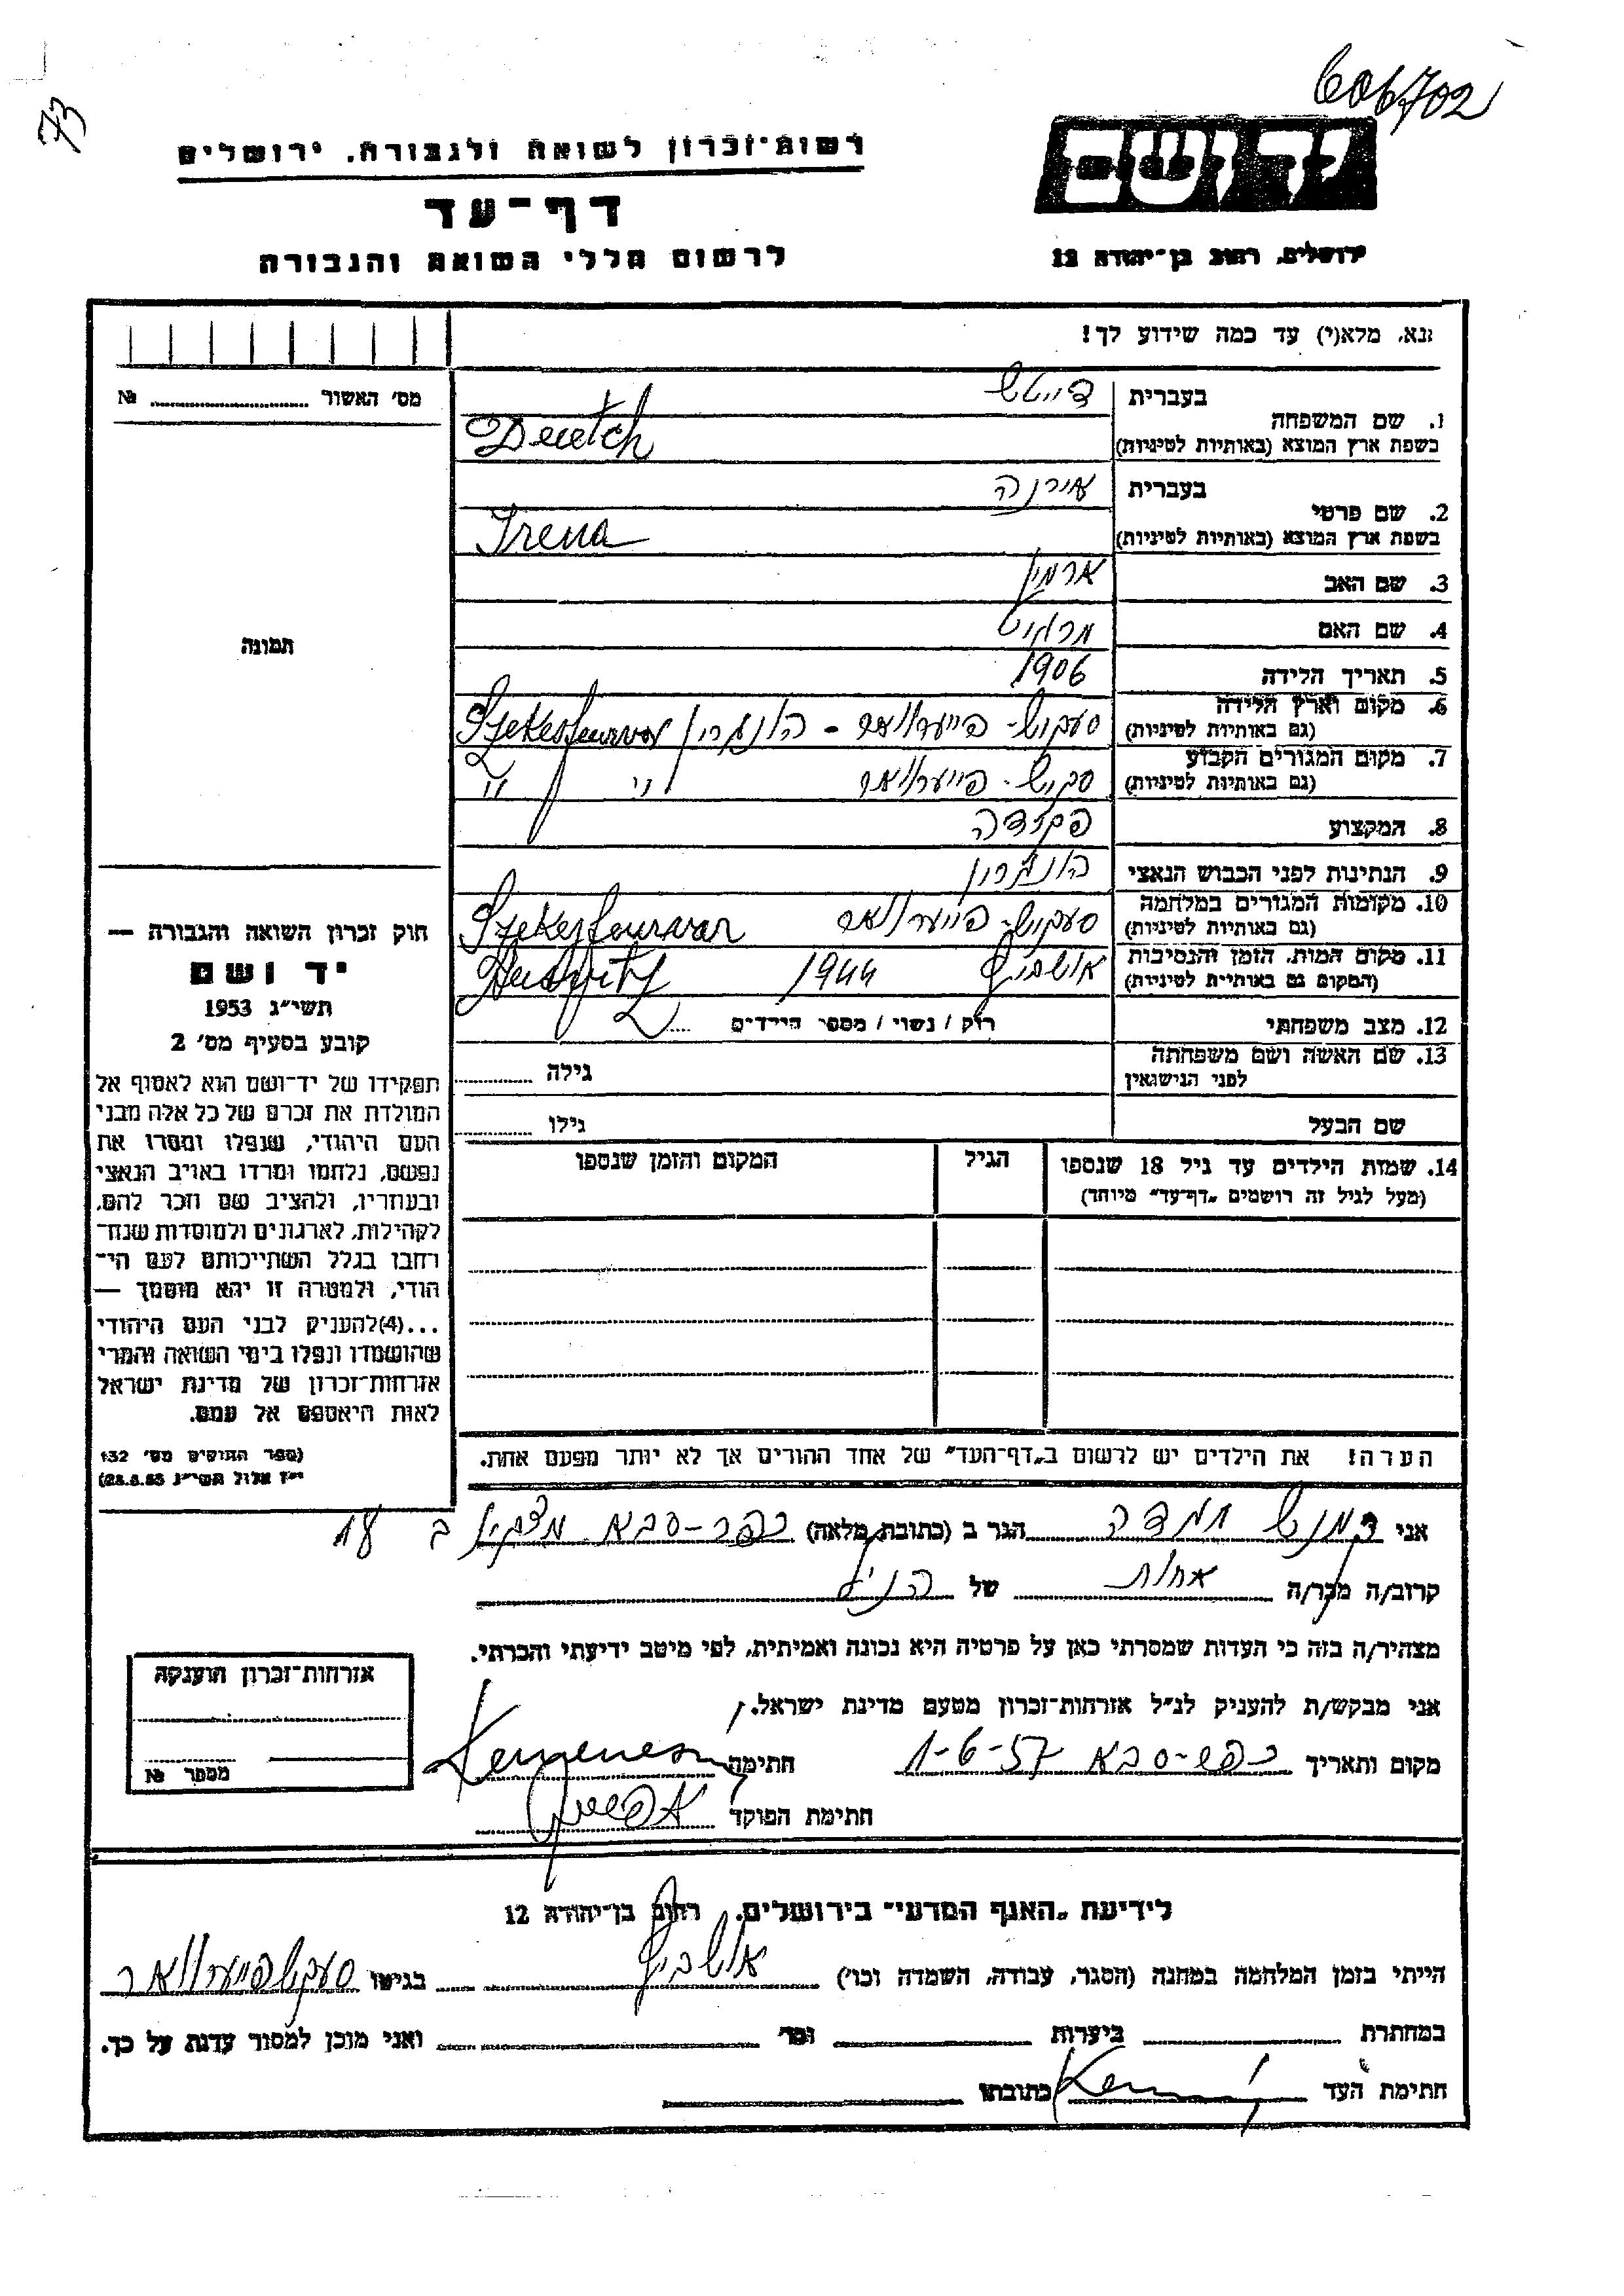 606702
73
רשות-זכרון לשואה ולגבורה, ירושלים
יד ושם
דף-עד
לרשום חללי השואה והגבורה
ירושלים, רחוב בן-יהודה 12
נא, מלא(י) עד כמה שידוע לך!
מס׳ האשור № 
1. שם המשפחה בעברית דייטש
בשפת ארץ המוצא (באותיות לטיניות) Deutch
2. שם פרטי בעברית אירנה
בשפת ארץ המוצא (באותיות לטיניות) Irena
3. שם האב ארמין
4. שם האם מרגיט
5. תאריך הלידה 1906
6. מקום וארץ הלידה (גם באותיות לטיניות) סעקש-פייערוואר - הונגריו Szekesfeurvar
7. מקום המגורים הקבוע (גם באותיות לטיניות) סקש-פייערוואר " "
8. המקצוע פקידה
9. הנתינות לפני הכבוש הנאצי הונגריו
10. מקומות המגורים במלחמה (גם באותיות לטיניות) סעקש-פייערוואר Szekesfeurvar
11. מקום המות, הזמן והנסיבות (המקום גם באותיות לטיניות) אושביץ 1944 Auschvitz
12. מצב משפחתי רוק / נשוי / מספר הילדים
13. שם האשה ושם משפחתה לפני הנישואין גילה
שם הבעל גילו
14. שמות הילדים עד גיל 18 שנספו הגיל המקום והזמן שנספו
(מעל לגיל זה רושמים „דף-עד” מיוחד)
תמונה
חוק זכרון השואה והגבורה —
יד ושם
תשי״ג 1953
קובע בסעיף מס׳ 2
תפקידו של יד-ושם הוא לאסוף אל
המולדת את זכרם של כל אלה מבני
העם היהודי, שנפלו ומסרו את
נפשם, נלחמו ומרדו באויב הנאצי
ובעוזריו, ולהציב שם וזכר להם,
לקהילות, לארגונים ולמוסדות שנח-
רבו בגלל השתייכותם לעם הי-
הודי, ולמטרה זו יהא מוסמך —
...(4)להעניק לבני העם היהודי
שהושמדו ונפלו בימי השואה והמרי
אזרחות-זכרון של מדינת ישראל
לאות היאספם אל עמם.
(ספר החוקים מס׳ 132
י״ז אלול תשי״ג 28.8.53)
הערה! את הילדים יש לרשום ב„דף-העד” של אחד ההורים אך לא יותר מפעם אחת.
אני קמנש חמדה הגר ב (כתובת מלאה) כפר-סבא ב 18
קרוב/ה מכר/ה אחות של הנ״ל
מצהיר/ה בזה כי העדות שמסרתי כאן על פרטיה היא נכונה ואמיתית, לפי מיטב ידיעתי והכרתי.
אני מבקש/ת להעניק לנ״ל אזרחות-זכרון מטעם מדינת ישראל.
מקום ותאריך כפר-סבא 1-6-57 חתימה
חתימת הפוקד
אזרחות-זכרון הוענקה
מספר №
לידיעת „האגף המדעי” בירושלים, רחוב בן-יהודה 12
הייתי בזמן המלחמה במחנה (הסגר, עבודה, השמדה וכו׳) אושביץ בגיטו סעקשפייערוואר
במחתרת ביערות וכו׳ ואני מוכן למסור עדות על כך.
חתימת העד כתובתו